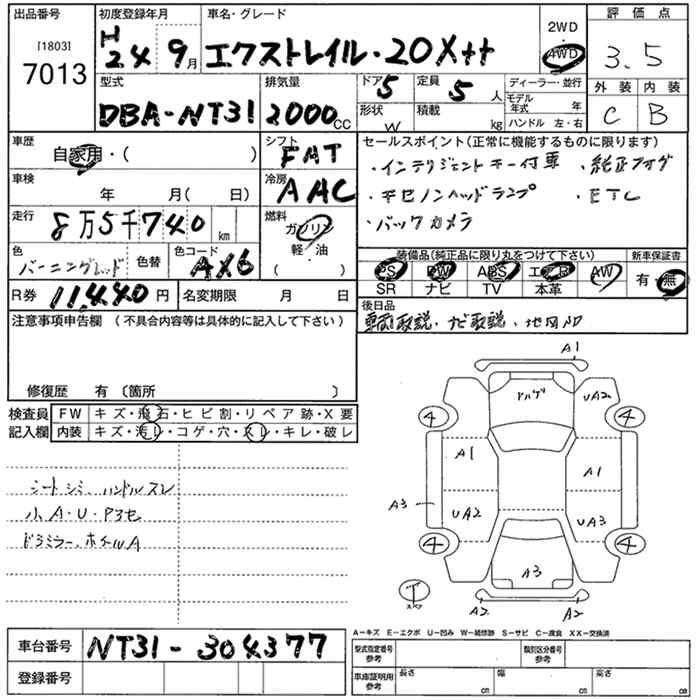 出品番号 初度登録年月 車名・グレード 2WD 評価点
[1803] H 24 9月 エクストレイル・20X tt 4WD 3.5
7013
型式 排気量 ドア 5 定員 5人 ディーラー・並行 外装 内装
DBA-NT31 2000cc 形状 W 積載 kg モデル年式 年 C B
ハンドル 左・右
車歴 シフト セールスポイント(正常に機能するものに限ります)
自家用・( ) FAT ・インテリジェントキー付車 ・純正フォグ
車検 冷房 ・キセノンヘッドランプ ・ETC
年 月( 日) AAC ・バックカメラ
走行 燃料
8万5千740km ガソリン
軽油
( )
色 色替 色コード 装備品(純正品に限り丸をつけて下さい) 新車保証書
バーニングレッド AX6 PS PW ABS エアB AW 有・無
SR ナビ TV 本革
R券 11,440円 名変期限 月 日 後日品
車両取説・ナビ取説・地図
注意事項申告欄 (不具合内容等は具体的に記入して下さい)
修復歴 有(箇所 )
検査員 FW キズ・飛石・ヒビ割・リペア跡・X要
記入欄 内装 キズ・汚レ・コゲ・穴・スレ・キレ・破レ
シートシミ、ハンドルスレ
小A・U・P3セ
ドラミラー、ホイルA
A1
UA2
4 4
A1 A1
A3
UA2 UA3
4 4
A3
T
スペア
A2 A2
A-キズ E-エクボ U-凹み W-補修跡 S-サビ C-腐食 XX-交換済
車台番号 NT31-304377 型式指定番号 参考 類別区分番号 参考
登録番号 車庫証明用 参考 長さ cm 幅 cm 高さ cm